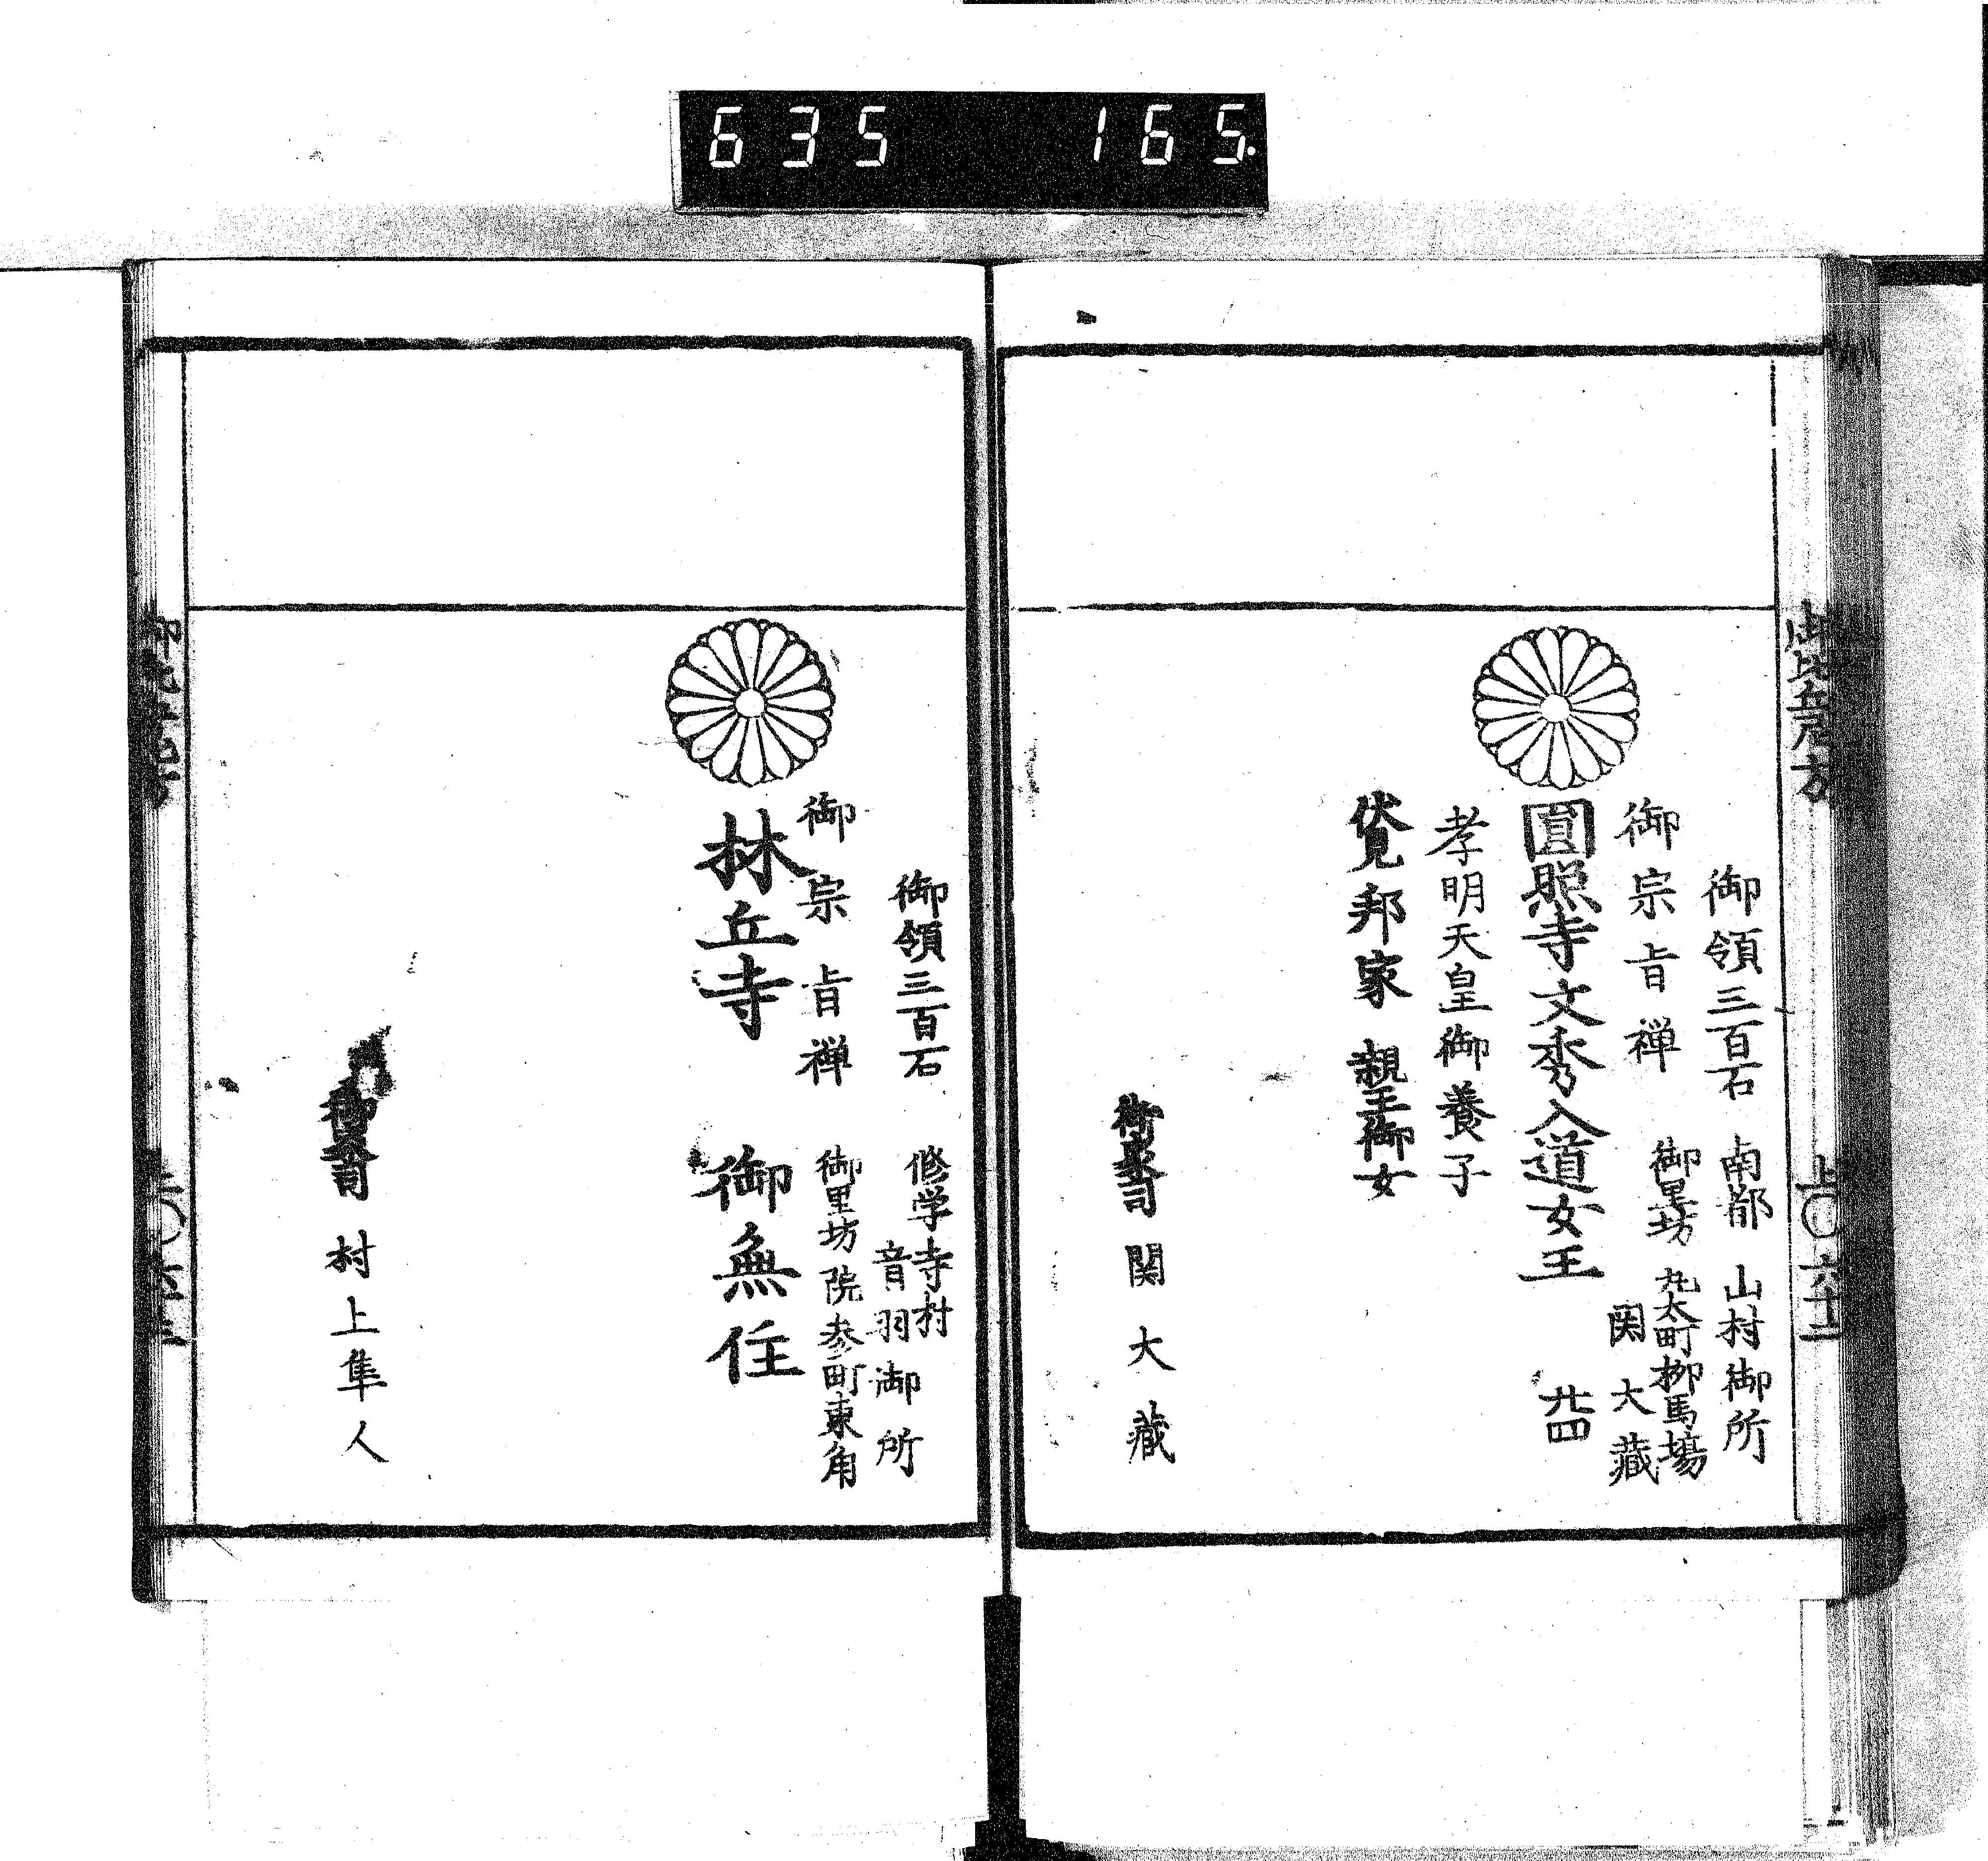 635 165.
御比丘尼方
上〇六十二
御領三百石 南都 山村御所
御宗旨禅 御里坊 丸太町柳馬場
関大藏
圓照寺文秀入道女王 廿四
孝明天皇御養子
伏見邦家親王御女
関大藏
御領三百石 修学寺村
音羽御所
御宗旨禅 御里坊 院参町東角
林丘寺 御無住
村上隼人